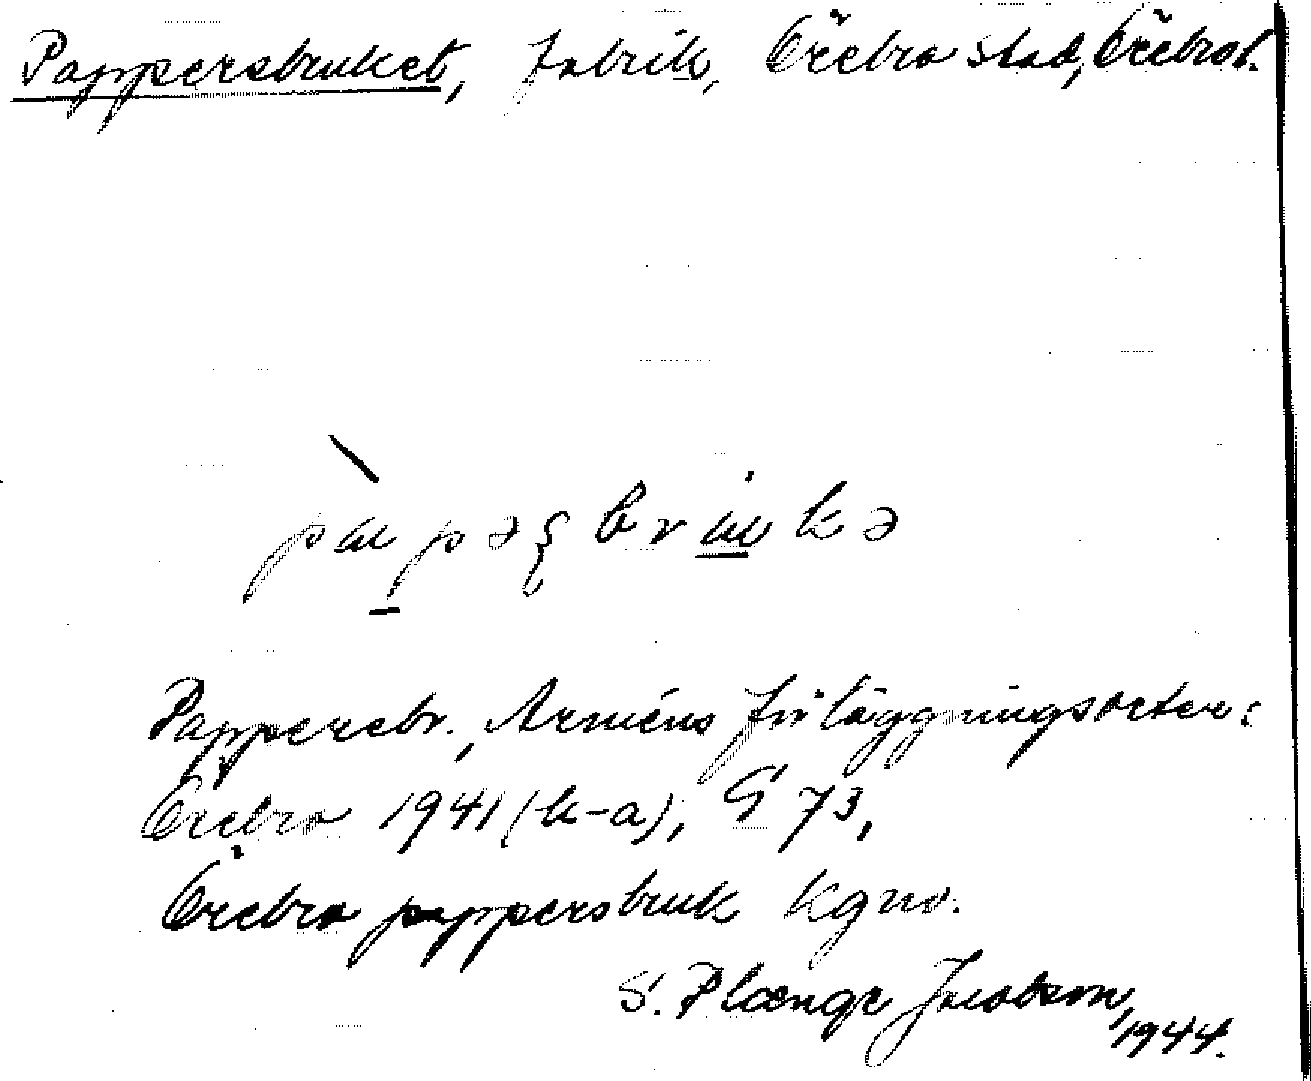 Pappersbruket, fabrik, Örebro stad, Örebro l.
Pappersbr., Arméns förläggningsorter:
Örebro 1941 (k-a), G 73,
Örebro pappersbruk Kgno.
S. Plænge Jacobson,
1944.